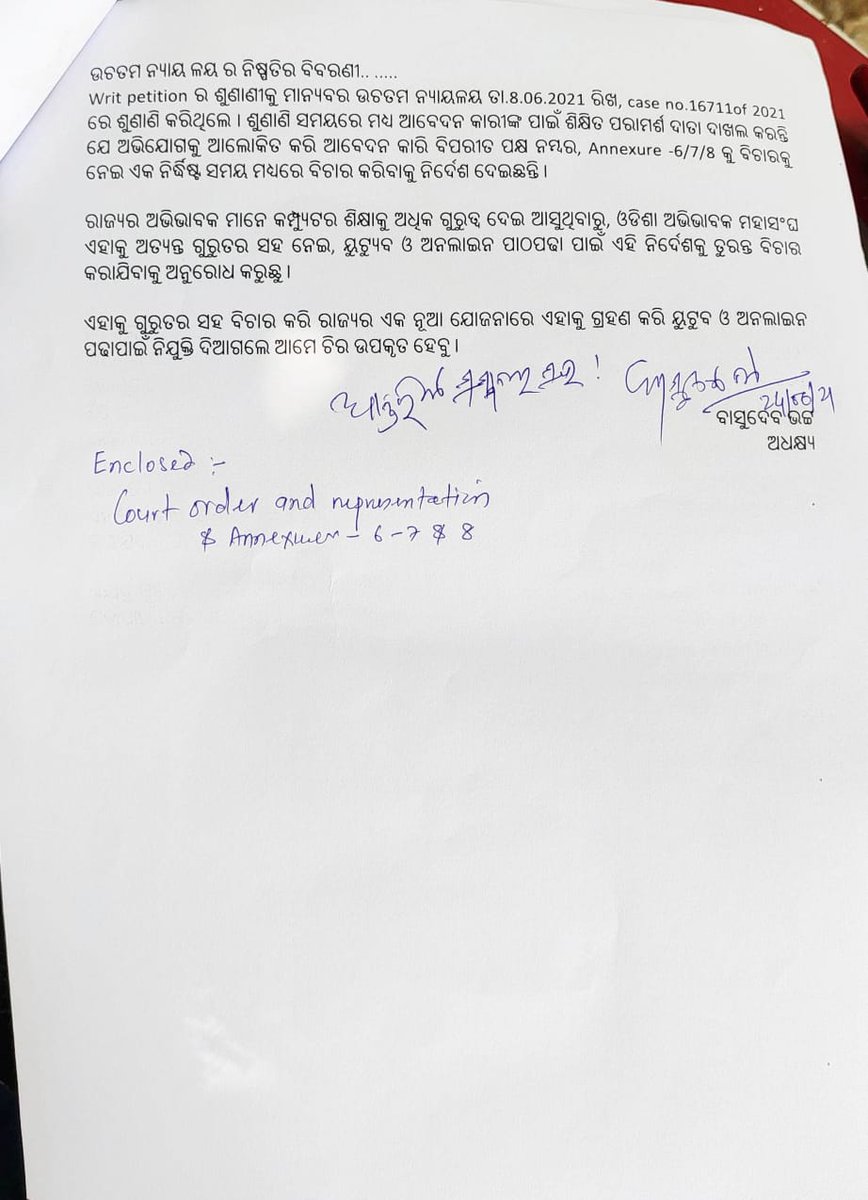 ଉଚତମ ନ୍ୟାୟ ଳୟ ର ନିଷ୍ପତିର ବିବରଣୀ.. .....
Writ petition ର ଶୁଣାଣୀକୁ ମାନ୍ୟବର ଉଚତମ ନ୍ୟାୟଳୟ ତା.8.06.2021 ରିଖ, case no.16711of 2021
ରେ ଶୁଣାଣି କରିଥିଲେ । ଶୁଣାଣି ସମୟରେ ମଧ୍ୟ ଆବେଦନ କାରୀଙ୍କ ପାଇଁ ଶିକ୍ଷିତ ପରାମର୍ଶ ଦାତା ଦାଖଲ କରନ୍ତି
ଯେ ଅଭିଯୋଗକୁ ଆଲୋକିତ କରି ଆବେଦନ କାରି ବିପରୀତ ପକ୍ଷ ନମ୍ବର, Annexure -6/7/8 କୁ ବିଚାରକୁ
ନେଇ ଏକ ନିର୍ଦ୍ଧିଷ୍ଟ ସମୟ ମଧ୍ୟରେ ବିଚାର କରିବାକୁ ନିର୍ଦେଶ ଦେଇଛନ୍ତି ।
ରାଜ୍ୟର ଅଭିଭାବକ ମାନେ କମ୍ପ୍ୟୁଟର ଶିକ୍ଷାକୁ ଅଧିକ ଗୁରୁତ୍ୱ ଦେଇ ଆସୁଥିବାରୁ, ଓଡିଶା ଅଭିଭାବକ ମହାସଂଘ
ଏହାକୁ ଅତ୍ୟନ୍ତ ଗୁରୁତର ସହ ନେଇ, ୟୁଟ୍ୟୁବ ଓ ଅନଲାଇନ ପାଠପଢା ପାଇଁ ଏହି ନିର୍ଦେଶକୁ ତୁରନ୍ତ ବିଚାର
କରାଯିବାକୁ ଅନୁରୋଧ କରୁଛୁ ।
ଏହାକୁ ଗୁରୁତର ସହ ବିଚାର କରି ରାଜ୍ୟର ଏକ ନୂଆ ଯୋଜନାରେ ଏହାକୁ ଗ୍ରହଣ କରି ୟୁଟୁବ ଓ ଅନଲାଇନ
ପଢାପାଇଁ ନିଯୁକ୍ତି ଦିଆଗଲେ ଆମେ ଚିର ଉପକୃତ ହେବୁ ।
24/06/21
ବାସୁଦେବ ଭଟ୍ଟ
ଅଧକ୍ଷ୍ୟ
Enclosed :-
Court order and representation
& Annexures - 6-7 & 8